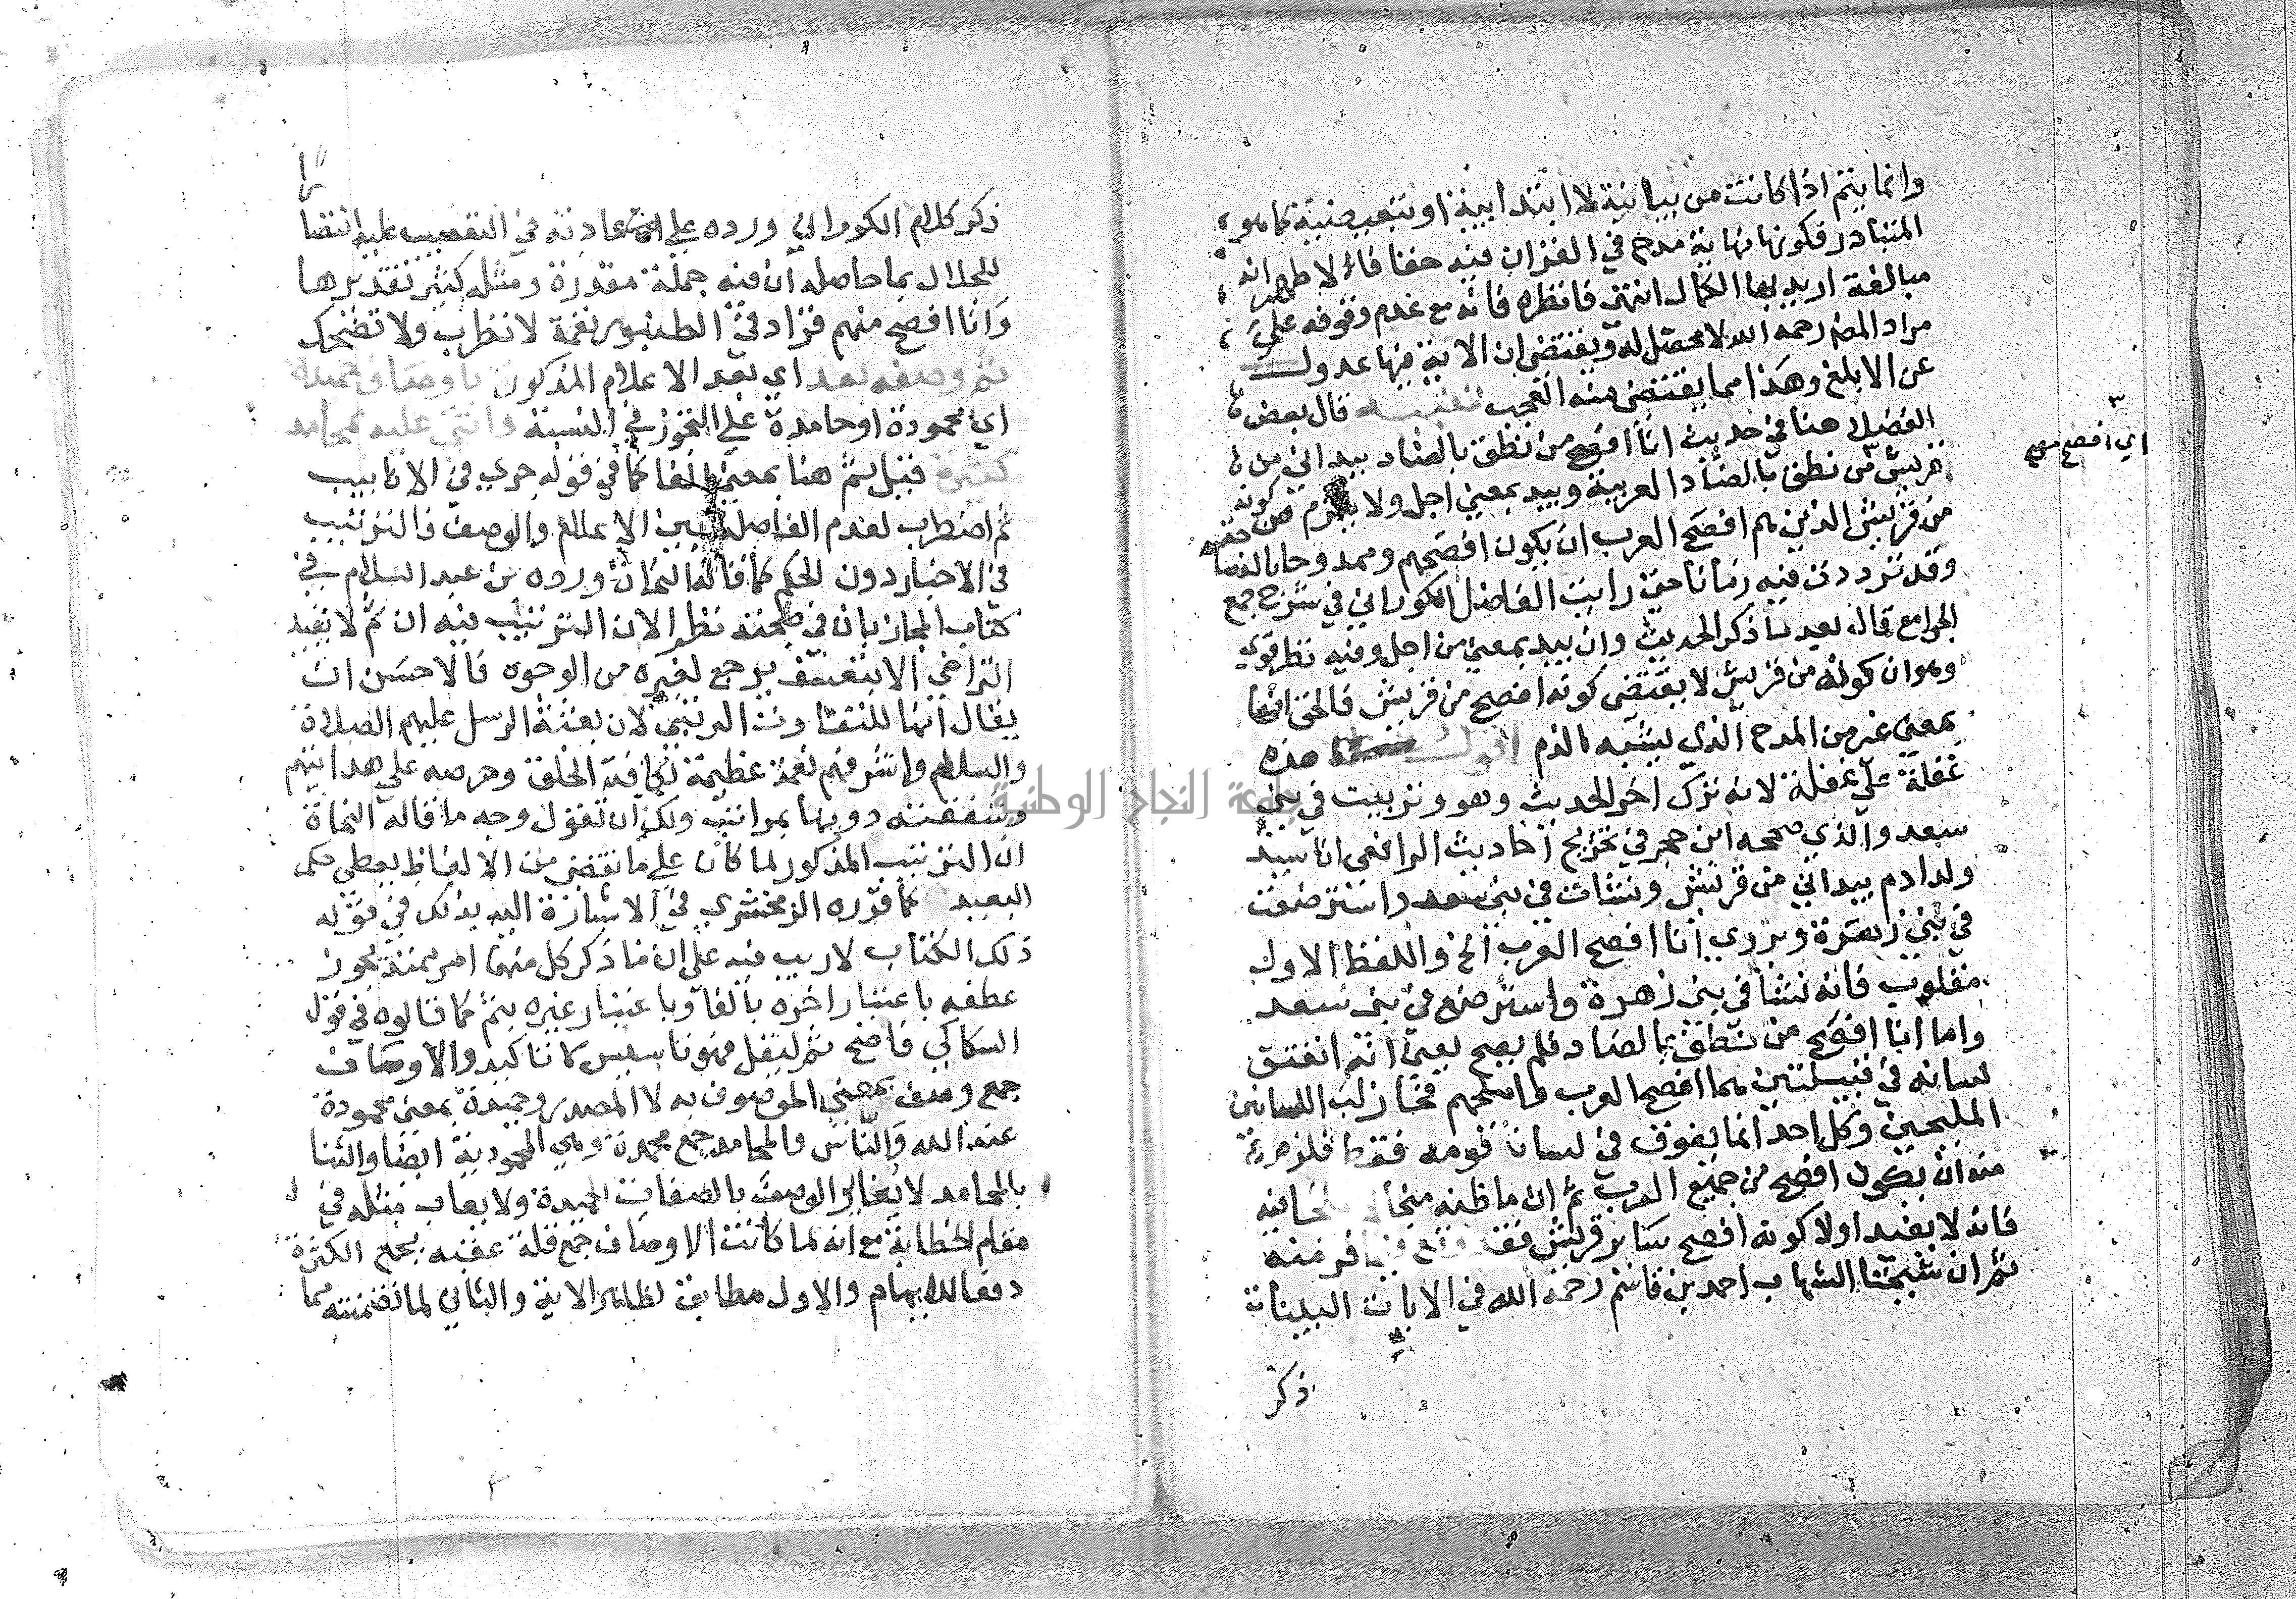 وانما يتم اذا كانت من بيانية لا ابتدائية او تبعيضية كما هو
المتبادر فكونها نهاية مدح في القران فيه خفا فالاظهر انه
مبالغة اريد بها الكمال انتهى فانظره فانه مع عدم وقوفه على
مراد المص رحمه الله لا محتمل له ويقتضي ان الاية فيها عدول
عن الابلغ وهذا مما يقتضى منه العجب تنبيه قال بعض
الفضلا هنا في حديث انا افصح من نطق بالضاد بيد اني من
قريش من نطق بالضاد العربية وبيد بمعنى اجل ولا يلزم من كونه
من قريش الذين هم افصح العرب ان يكون افصحهم وممدوحا بالفصا حته
وقد ترددت فيه زمانا حتى رايت الفاضل الكوراني في شرح جمع
الجوامع قال بعد ما ذكر الحديث وان بيد بمعنى من اجل وفيه نظر قوي
وهو ان كونه من قريش لا يقتضي كونه افصح من قريش فالحق انها
بمعنى غير من المدح الذي يشبه الذم اقول هذه
غفلة على غفلة لانه ترك اخر الحديث وهو وتربيت في بني
سعد والذي صححه ابن حجر في تخريج احاديث الرافعي انا سيد
ولد ادم بيد اني من قريش ونشات في بني سعد واسترضعت
في بني زهرة ويروى انا افصح العرب الخ واللفظ الاول
مقلوب فانه نشأ في بني زهرة واسترضع في بني سعد
واما انا افصح من نطق بالضاد فلم يصح يعني انه انفتق
لسانه في قبيلتين هما افصح العرب واملحهم فحاز لب اللسانين
المليحين وكل احد انما يفوق في لسان قومه فقط فلزم
منه ان يكون افصح من جميع العرب ثم ان ما ظنه
فانه لا يفيد اولا كونه افصح سائر قريش فقد وقع فيما فر منه
ثم ان شيخنا الشهاب احمد بن قاسم رحمه الله في الايات البينات
ذكر
٣
اي افصح منهم
ذكر كلام الكوراني ورده على عادته في التعصب عليه انتصارا
للجلال بما حاصله ان فيه جملة مقدرة ومثله كثير تقديرها
وانا افصح منهم فزاد في الطنبور نغمة لا تطرب ولا تضحك
ثم وصفه بعد اي بعد الاعلام المذكور باوصاف حميدة
اي محمودة او حامدة على التجوز في النسبة واثنى عليه بمحامد
كثيرة قيل ثم هنا بمعنى الفا كما في قوله جرى في الانابيب
ثم اضطرب لعدم الفاصلة بين الاعلام والوصف فالترتيب
في الاخبار دون الحكم كما قاله النحاة ورده بن عبد السلام في
كتاب المجاز بان في صحته نظرا لان الترتيب فيه ان ثم لا يفيد
التراخي الا بتعسف يرجع لغيره من الوجوه فالاحسن ان
يقال انها للتفاوت الرتبي لان بعثة الرسل عليهم الصلاة
والسلام واشرفهم نعمة عظيمة لكافة الخلق وحرصه على هدايتهم
وشفقته دونها بمراتب ولك ان تقول وجه ما قاله النحاة
ان الترتيب المذكور لما كان على ما تقضى من الالفاظ يعطى حكم
البعيد كما قرره الزمخشري في الاشارة اليه بذلك في قوله
ذلك الكتاب لا ريب فيه على ان ما ذكر كل منهما امر ممتد يجوز
عطفه باعتبار اخره بالفا وباعتبار غيره بثم كما قالوه في قول
السكاكي فاضح ثم ليقل فهو تاسيس لا تاكيد والاوصاف
جمع وصف بمعنى الموصوف به لا المصدر وحميدة بمعنى محمودة
عند الله والناس والمحامد جمع محمدة وهي المحمودية ايضا والثنا
بالمحامد لا يغاير الوصف بالصفات الحميدة ولا يعاب مثله في
مقام الخطابة مع انه لما كانت الاوصاف جمع قلة عقبه بجمع الكثرة
دفعا للايهام والاول مطابق لظاهر الاية والثاني لما تضمنته مما
جامعة النجاح الوطنية